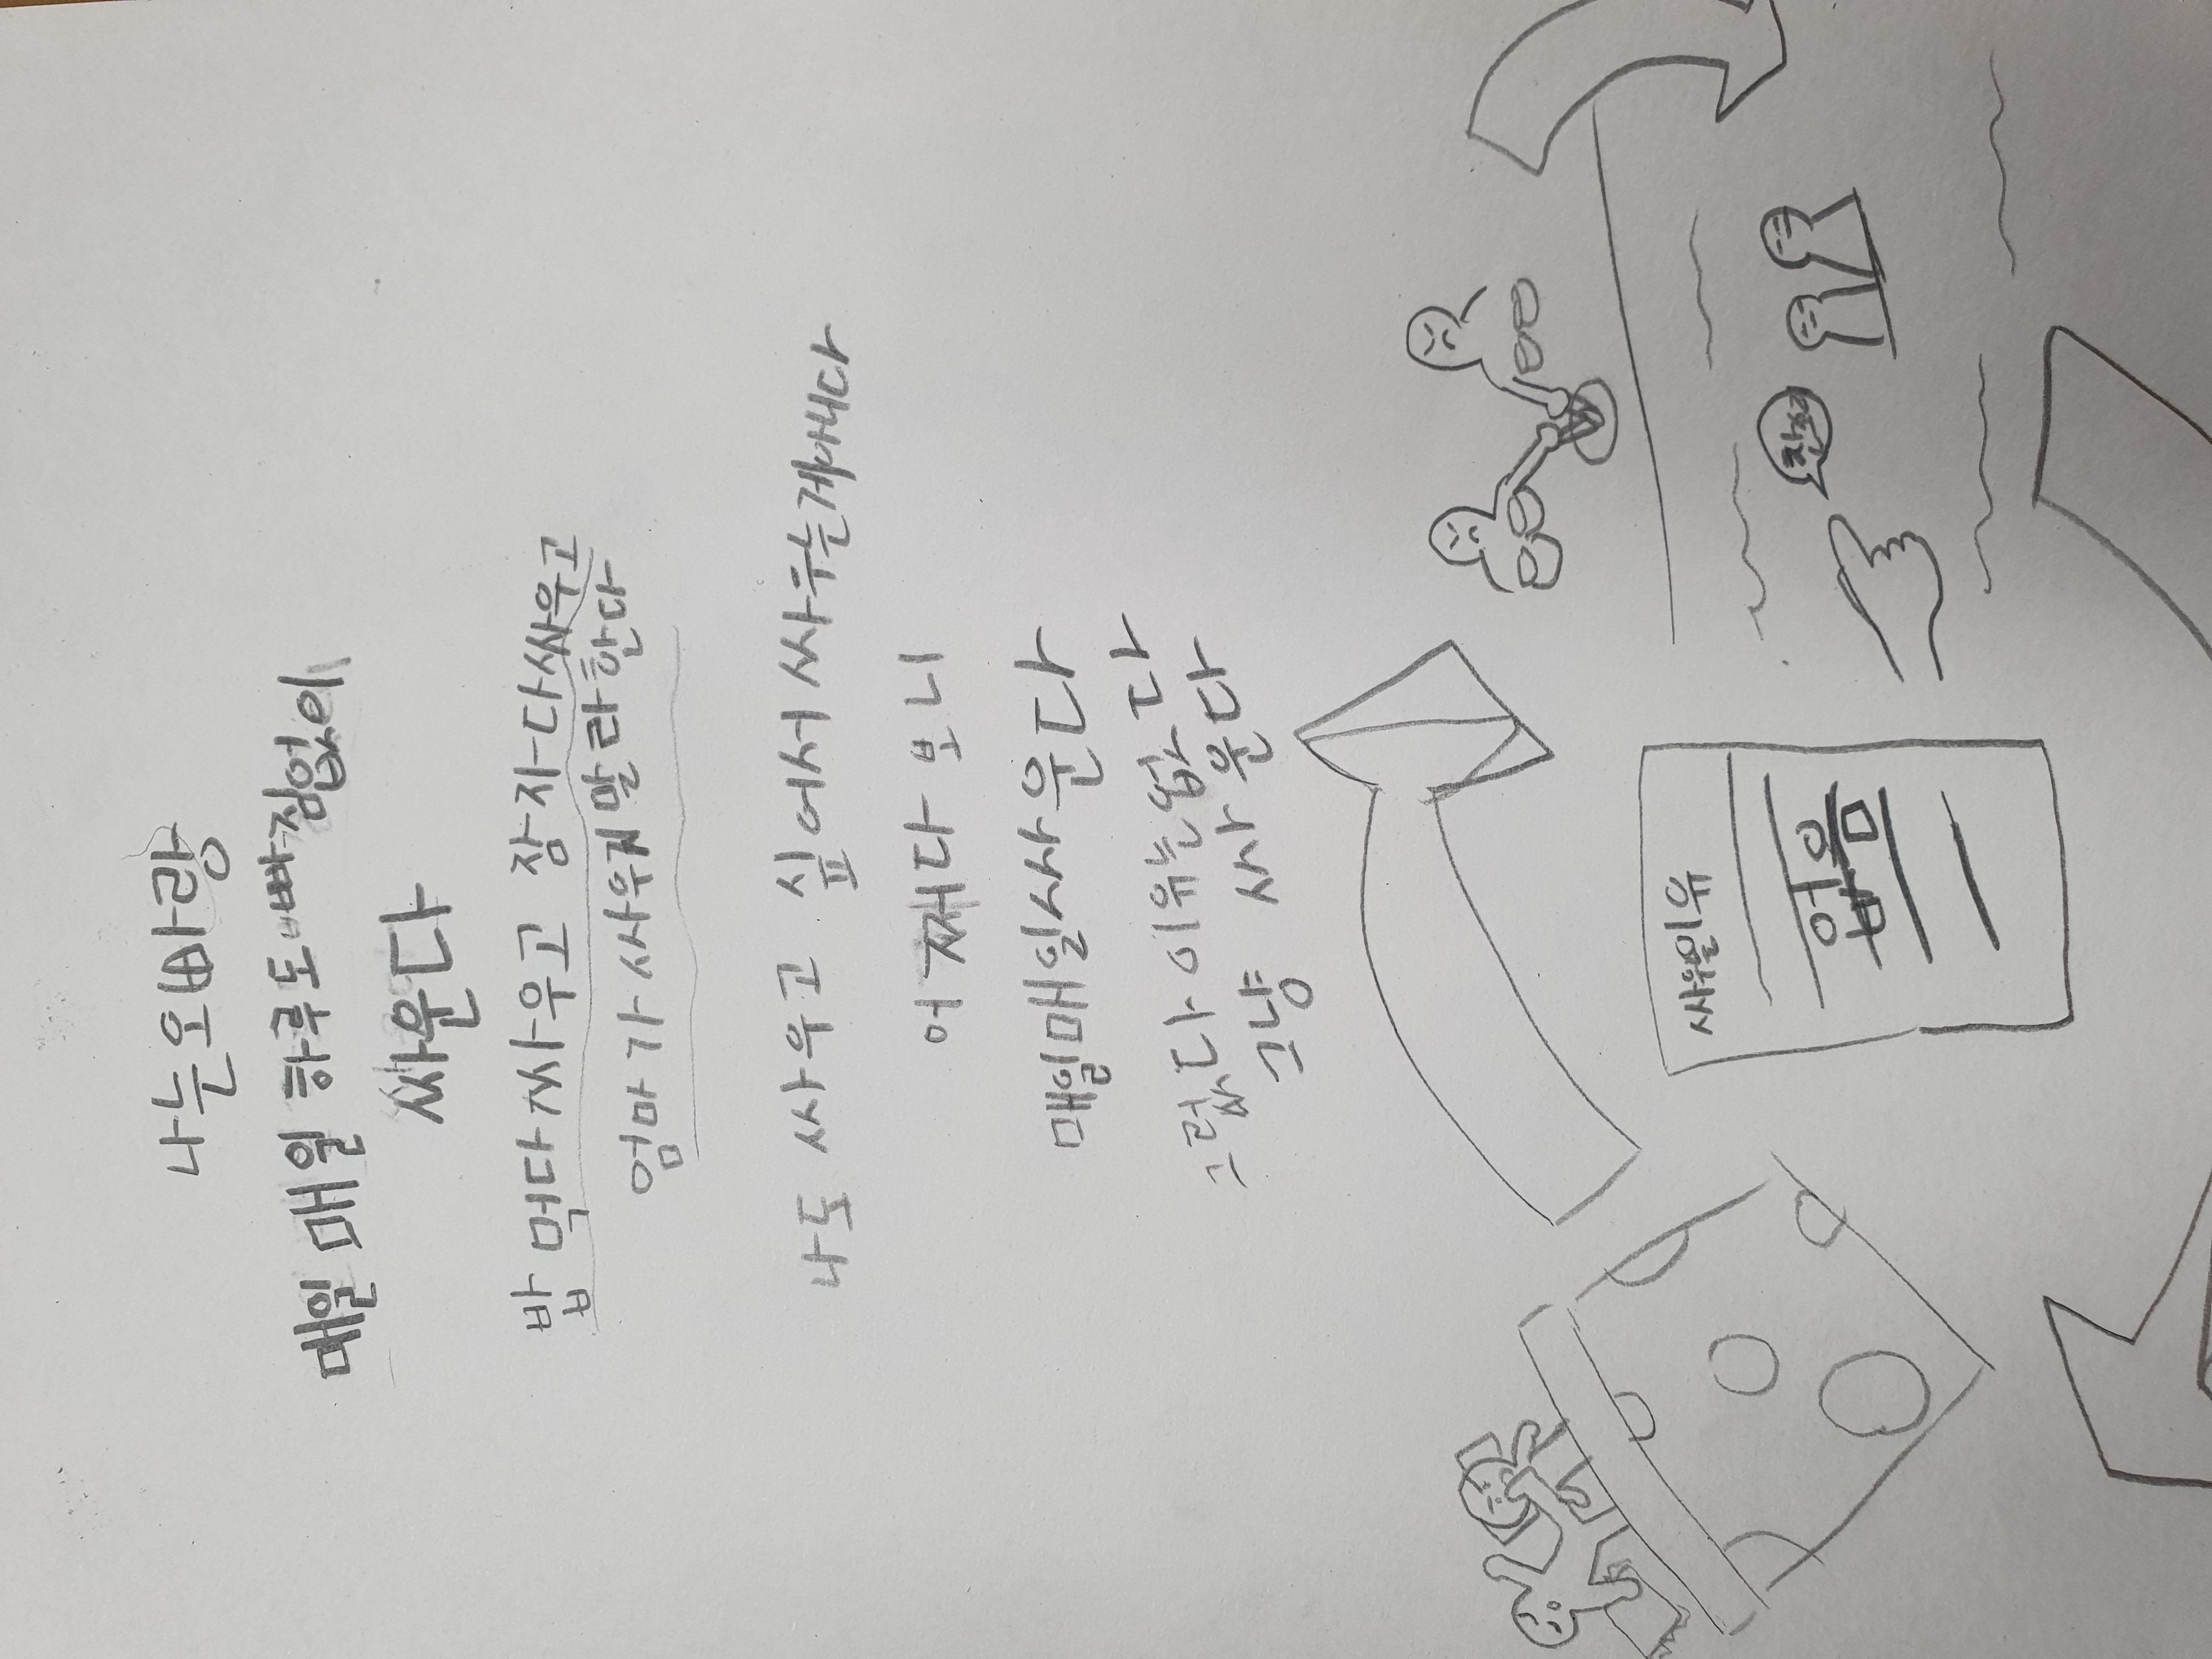 나는오빠랑
매일 매일 하루도 빠짐없이
싸운다
밥 먹다 싸우고 잠자다싸우고
엄마가 싸우지말라한다
나도 싸우고 싶어서 싸우는게아니다
어쩌다 보니
매일매일싸운다
그렇다 이유는없다
그냥 싸운다
싸울이유
없음